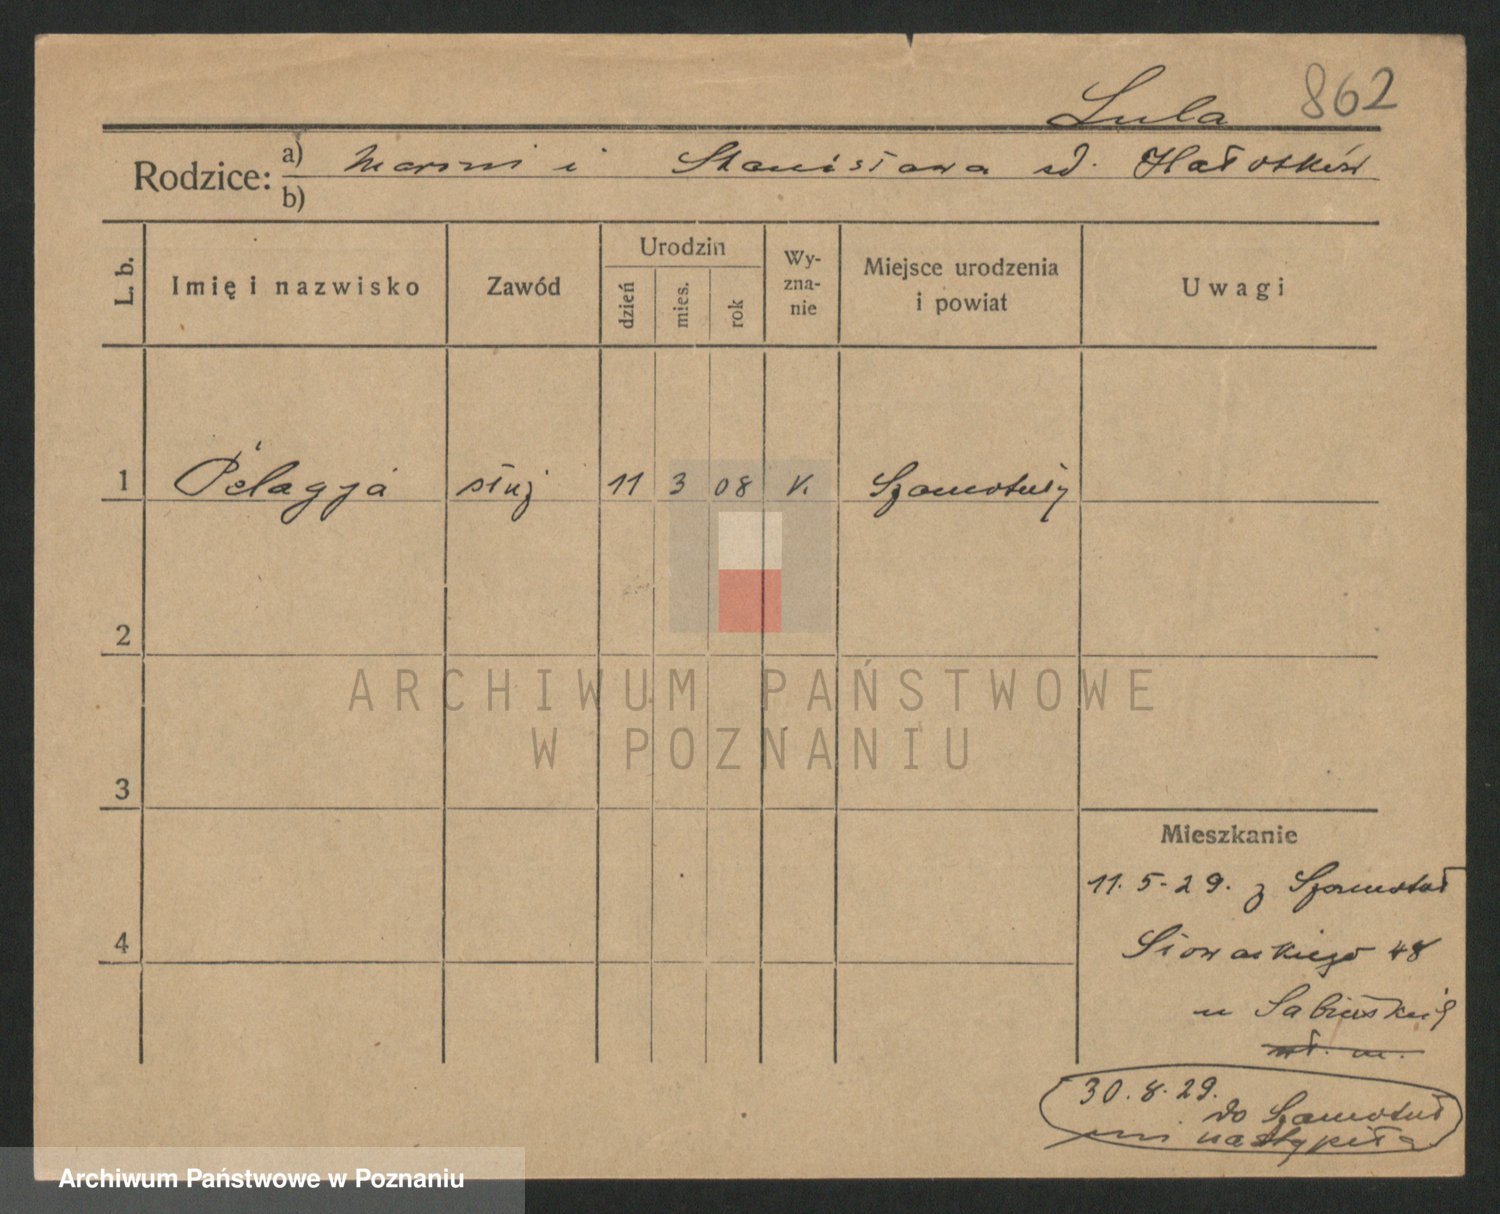 862
Lula
Rodzice: a) Marcin i Stanisława
b)
L. b.
Imię i nazwisko
Zawód
Urodzin
dzień
mies.
rok
Wy-
zna-
nie
Miejsce urodzenia
i powiat
Uwagi
1 Pelagja służ 11 3 08 k. Szamotuły
2
3
4
ARCHIWUM PAŃSTWOWE
W POZNANIU
Mieszkanie
11. 5. 29. z Szamotuł
Słowackiego 48
u
30. 8. 29.
do Szamotuł
nastąpiła
Archiwum Państwowe w Poznaniu